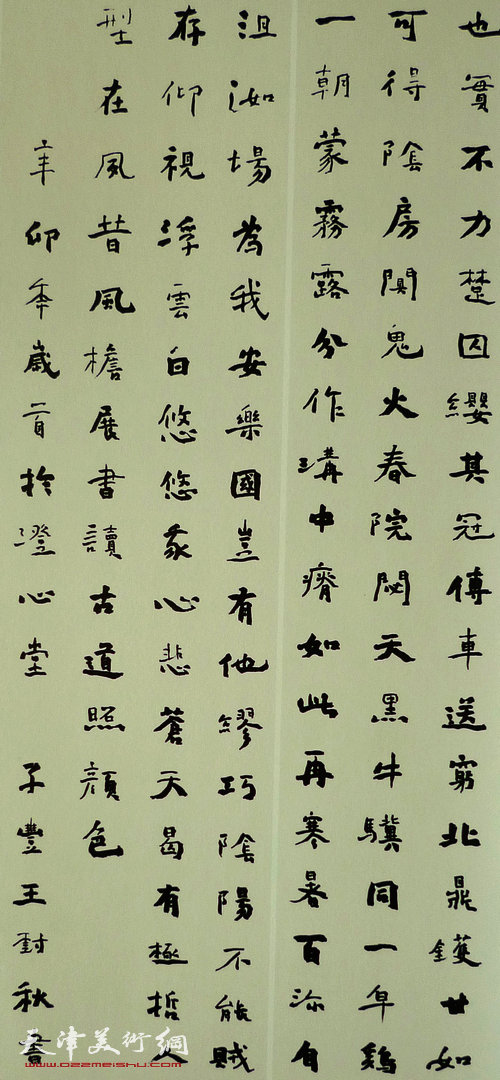 也實不力楚囚纓其冠傳車送窮北鼎鑊甘如
可得陰房闃鬼火春院閟天黑牛驥同一皁鷄
一朝蒙霧露分作溝中瘠如此再寒暑百沴自
沮洳場為我安樂國豈有他繆巧陰陽不能賊
存仰視浮雲白悠悠我心悲蒼天曷有極哲人
型在夙昔風檐展書讀古道照顏色
辛卯年歲首於澄心堂 子豐王秋書
天津美術網
www.022meishu.com